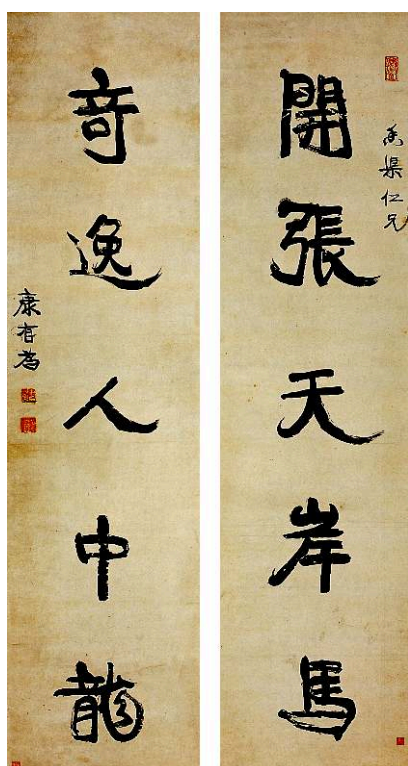 開張天岸馬
仁兄
奇逸人中龍
康有為